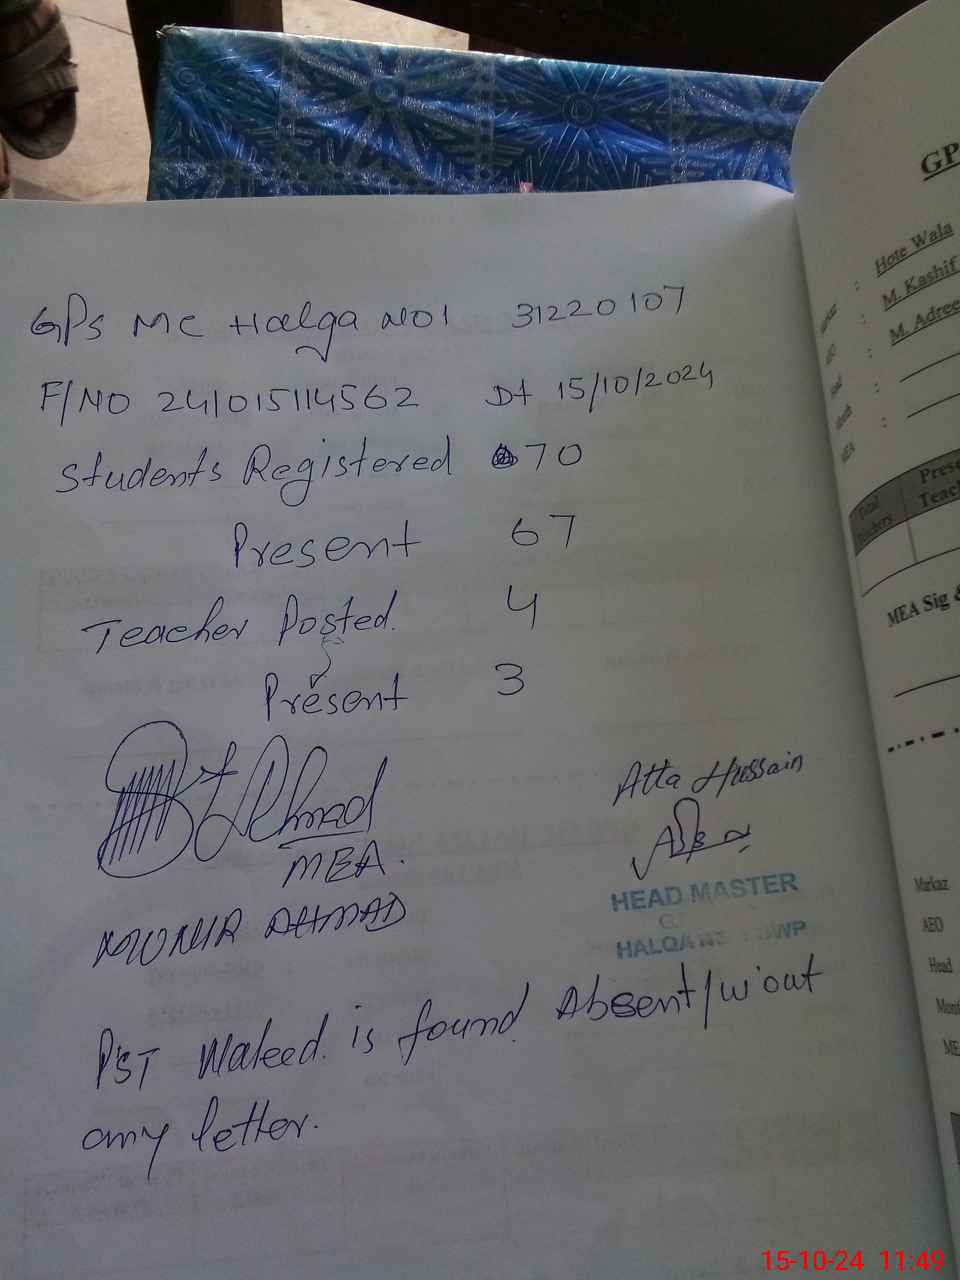 GPS MC Halqa NO1 31220107
F/NO 241015114562 Dt 15/10/2024
Students Registered 70
Present 67
Teacher Posted. 4
Present 3
Ahmad
MEA.
MUNIR AHMAD
Atta Hussain
HEAD MASTER
HALQA NO 1 BWP
PST Waleed. is found Absent/w'out
any letter.
GP
Hote Wala
M. Kashif
M. Adree
MEA
Total
Teachers
Prese
Teach
MEA Sig &
Markaz
AEO
Head
Mon
ME
15-10-24 11:49